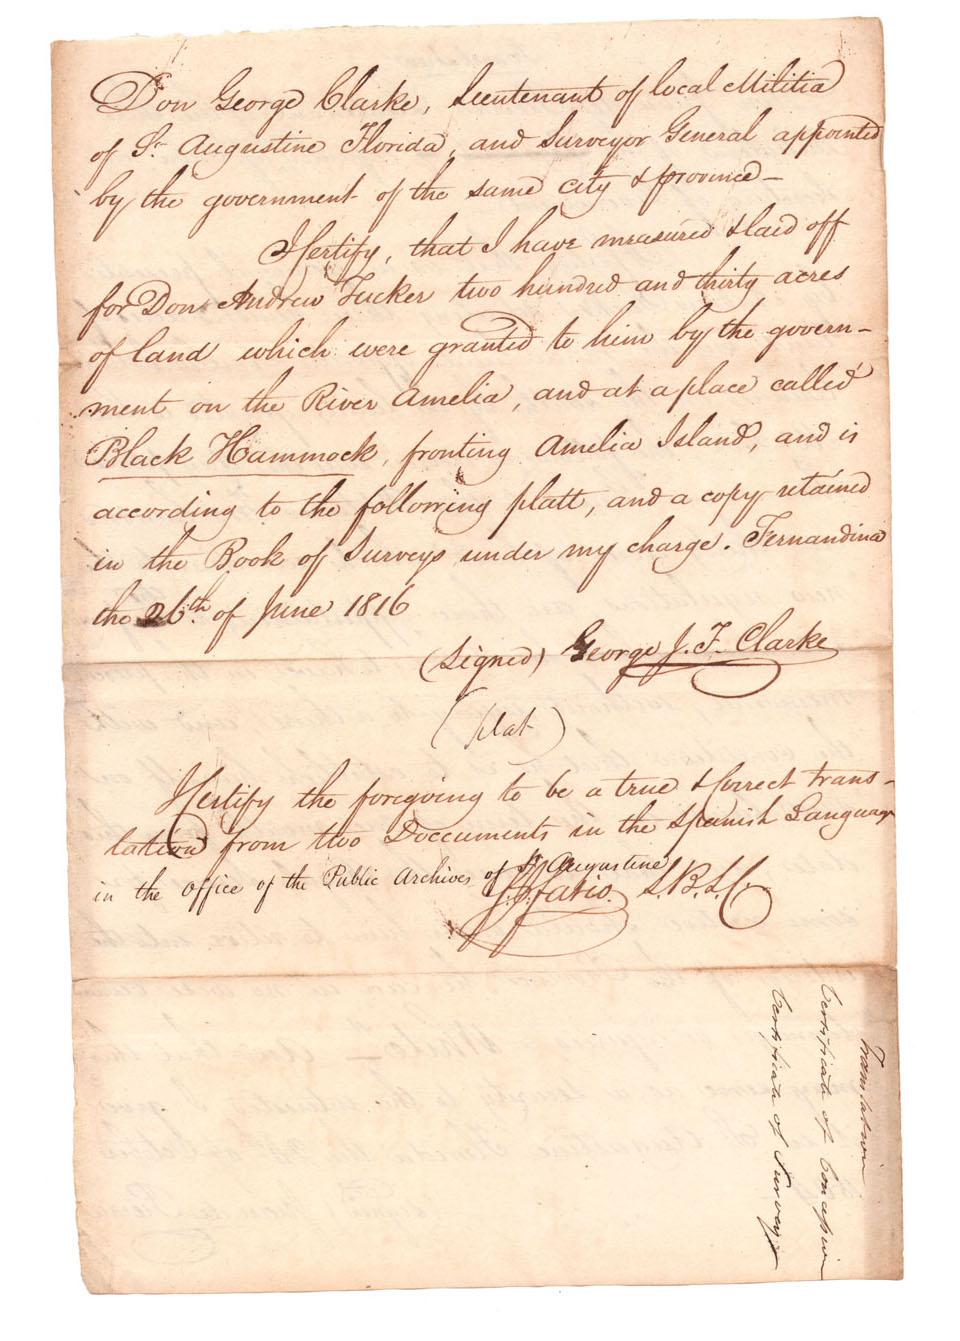 Don George Clarke, Lieutenant of local Militia
of St. Augustine Florida, and Surveyor General appointed
by the government of the same city & province—
I Certify, that I have measured & laid off
for Don Andrew Tucker two hundred and thirty acres
of land which were granted to him by the govern-
ment on the River Amelia, and at a place called
Black Hammock, fronting Amelia Island, and is
according to the following platt, and a copy retained
in the Book of Surveys under my charge. Fernandina
the 26th of June 1816
(Signed) George J. F. Clarke
(plat)
I Certify the foregoing to be a true & Correct trans-
lation from two Documents in the Spanish Language
in the Office of the Public Archives of St. Augustine
F. J. Fatio. S.B.L.C.
Translation
Certificate of Concession
Certificate of Survey